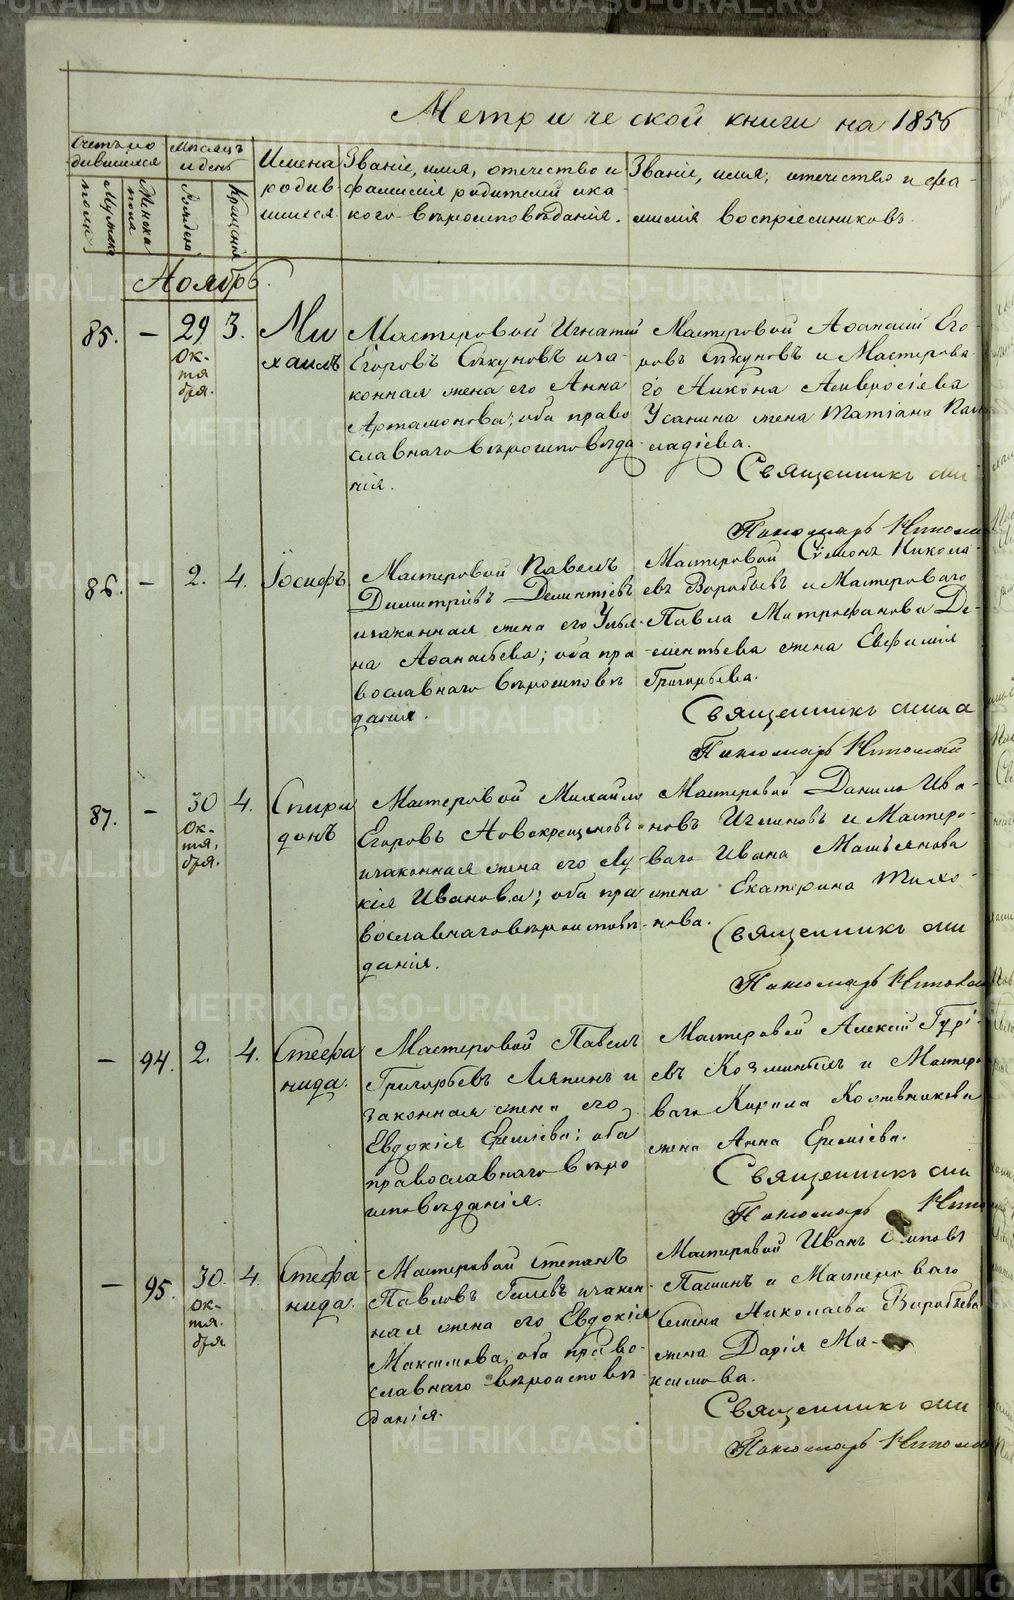 Метрической книги на 1856
Счетъ ро-
дившихся
Мѣсяцъ
и день
Имена
родив-
шихся.
Званіе, имя, отечество и
фамилія родителей и ка-
кого вѣроисповѣданія.
Званіе, имя, отечество и фа-
милія воспріемниковъ.
Мужска
пола
Женска
пола
Рожденія
Крещенія
Ноябрь.
85. – 29 3.
Ок-
тя
бря.
Ми
хаилъ
Мастеровой Игнатій
Егоровъ и за-
конная жена его Анна
Артамонова; оба право
славнаго вѣроисповѣда-
нія.
Мастеровой Афанасій Его-
ровъ и Мастерова-
го Никона Амвросіева
Усанина жена Татіана
Священникъ
Пономарь
86. – 2. 4.
Іосифъ
Мастеровой Павелъ
Димитріевъ Дементьевъ
и законная жена его Улья-
на Афанасьева; оба пра-
вославнаго вѣроисповѣ
данія.
Мастеровой Симонъ Никола-
евъ Воробьевъ и Мастероваго
Павла Митрофанова Де-
ментьева жена Евфимія
Григорьева.
Священникъ
Пономарь Николай
87. – 30 4.
Ок-
тя,
бря.
Спири
донъ
Мастеровой Михайло
Егоровъ Новокрещеновъ
и законная жена его Лу-
кія Иванова; оба пра
вославнаго вѣроисповѣ-
данія.
Мастеровой Данило Ива-
новъ и Мастеро-
ваго Ивана
жена Екатерина Тихо-
нова.
Священникъ
Пономарь
– 94. 2. 4.
Стефа
нида.
Мастеровой Павелъ
Григорьевъ Ляпинъ и
законная жена его
Евдокія Еремѣева; оба
православнаго вѣро
исповѣданія.
Мастеровой Алексій Гурі-
евъ и Мастеро
ваго Кирила Кожевникова
жена Анна Еремѣева.
Священникъ
Пономарь
– 95. 30. 4.
Ок-
тя.
бря
Стефа-
нида.
Мастеровой Степанъ
Павловъ Гилевъ и закон-
ная жена его Евдокія
Максимова, оба право-
славнаго вѣроисповѣ
данія.
Мастеровой Иванъ
Пашинъ и Мастероваго
Семена Николаева Воробьева
жена Дарія Ма-
ксимова.
Священникъ
Пономарь
METRIKI.GASO-URAL.RU